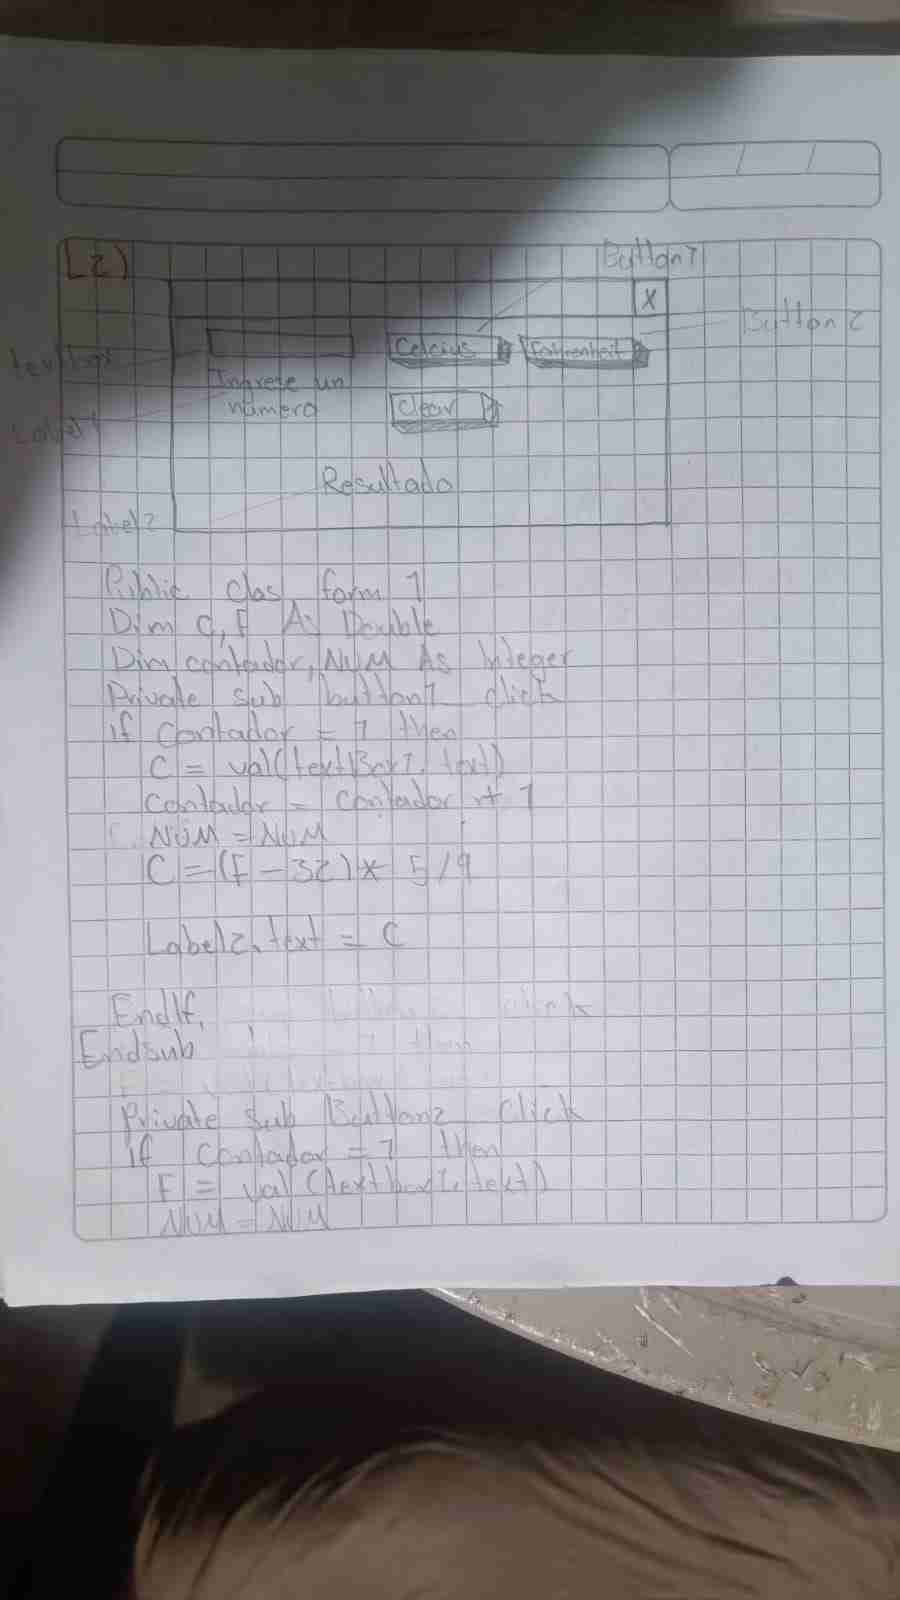 L2)
Button1
X
Button 2
Celcius
Fahrenheit
textbox
Ingrese un
numero
Clear
Label1
Resultado
Label2
Public clas form 1
Dim C, F As Double
Dim contador, NUM As Integer
Private sub button1 click
if Contador = 1 then
C = val(textBox1.text)
Contador = contador + 1
NUM = NUM
C = (F - 32) * 5/9
Label2.text = C
EndIf
Endsub
Private sub Button2 click
if Contador = 1 then
F = val (textbox1.text)
NUM = NUM